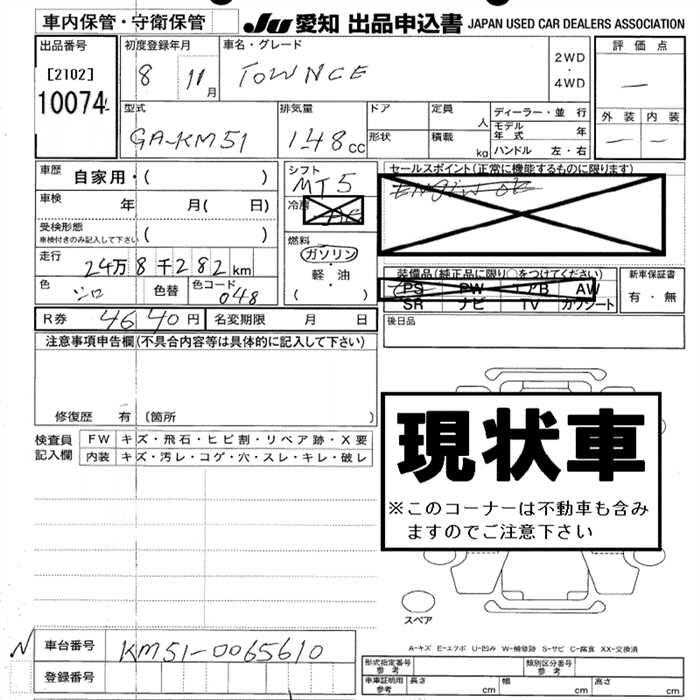 車内保管・守衛保管 JU 愛知 出品申込書 JAPAN USED CAR DEALERS ASSOCIATION
出品番号
[2102]
10074
初度登録年月
8 11月
車名・グレード
TOWNCE
2WD
・
4WD
評価点
—
外装 内装
— —
型式
GA-KM51
排気量
148cc
ドア
形状
定員 人
積載 kg
ディーラー・並行
モデル年式 年
ハンドル 左・右
車歴 自家用・( )
車検 年 月( 日)
受検形態
車検付きのみ記入して下さい ( )
走行
24万8千282km
色 シロ 色替 色コード 048
シフト
MT5
冷房 AC
燃料
ガソリン
・
軽・油
( )
セールスポイント(正常に機能するものに限ります)
ENGINE OK
装備品(純正品に限り○をつけてください)
PS PW エアB AW
SR ナビ TV カワシート
新車保証書
有・無
後日品
R券 4640円 名変期限 月 日
注意事項申告欄(不具合内容等は具体的に記入して下さい)
修復歴 有 〔箇所 〕
検査員記入欄
FW キズ・飛石・ヒビ割・リペア跡・X要
内装 キズ・汚レ・コゲ・穴・スレ・キレ・破レ
現状車
※このコーナーは不動車も含み
ますのでご注意下さい
スペア
A-キズ E-エクボ U-凹み W-補修跡 S-サビ C-腐食 XX-交換済
N 車台番号 KM51-0065610
登録番号
形式指定番号 参考
類別区分番号 参考
車庫証明用 参考 長さ cm 幅 cm 高さ cm